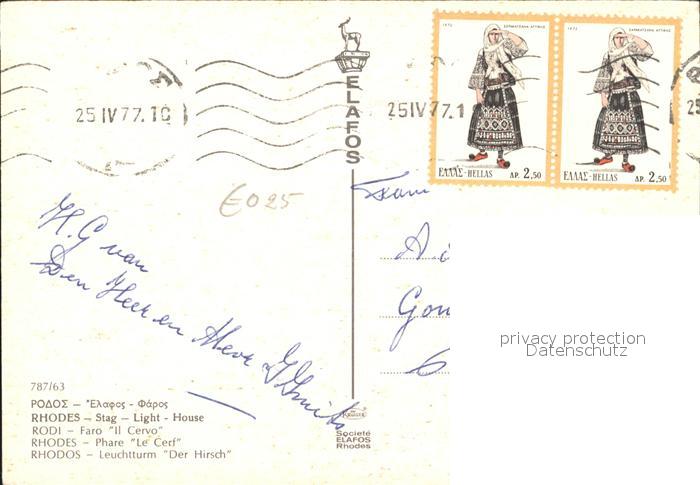 1972 ΣΑΡΑΚΑΤΣΑΝΑ ΑΤΤΙΚΗΣ
1972 ΣΑΡΑΚΑΤΣΑΝΑ ΑΤΤΙΚΗΣ
ΕΛΛΑΣ-HELLAS ΔΡ. 2,50
ΕΛΛΑΣ-HELLAS ΔΡ. 2,50
25 IV 77. 1
25 IV 77. 1
25
ELAFOS
€025
H.G van
Den Heer en Mevr
A
Gou
6
privacy protection
Datenschutz
787/63
ΡΟΔΟΣ – Ἔλαφος - Φάρος
RHODES – Stag – Light - House
RODI – Faro "Il Cervo"
RHODES – Phare "Le Cerf"
RHODOS – Leuchtturm "Der Hirsch"
Société
ELAFOS
Rhodes